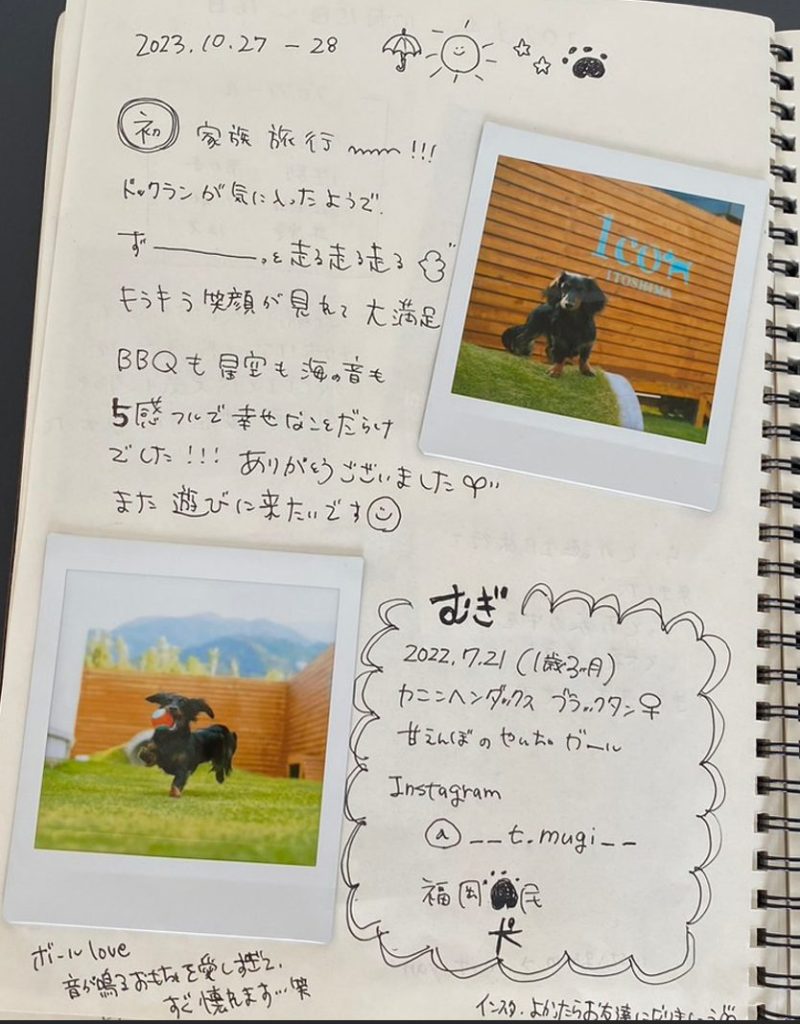 2023.10.27 - 28
初 家族旅行〰!!!
ドックランが気に入ったようで、
ず――――っと走る走る走る
キラキラ笑顔が見れて大満足
BBQも星空も海の音も
5感フルで幸せなことだらけ
でした!!! ありがとうございました
また遊びに来たいです
Ico
ITOSHIMA
むぎ
2022.7.21 (1歳3ヶ月)
カニンヘンダックス ブラックタン♀
甘えんぼのやんちゃガール
Instagram
@__t.mugi__
福岡犬民
ボールlove
音が鳴るおもちゃを愛しすぎて、
すぐ壊れます…笑
インスタ、よかったらお友達になりましょう